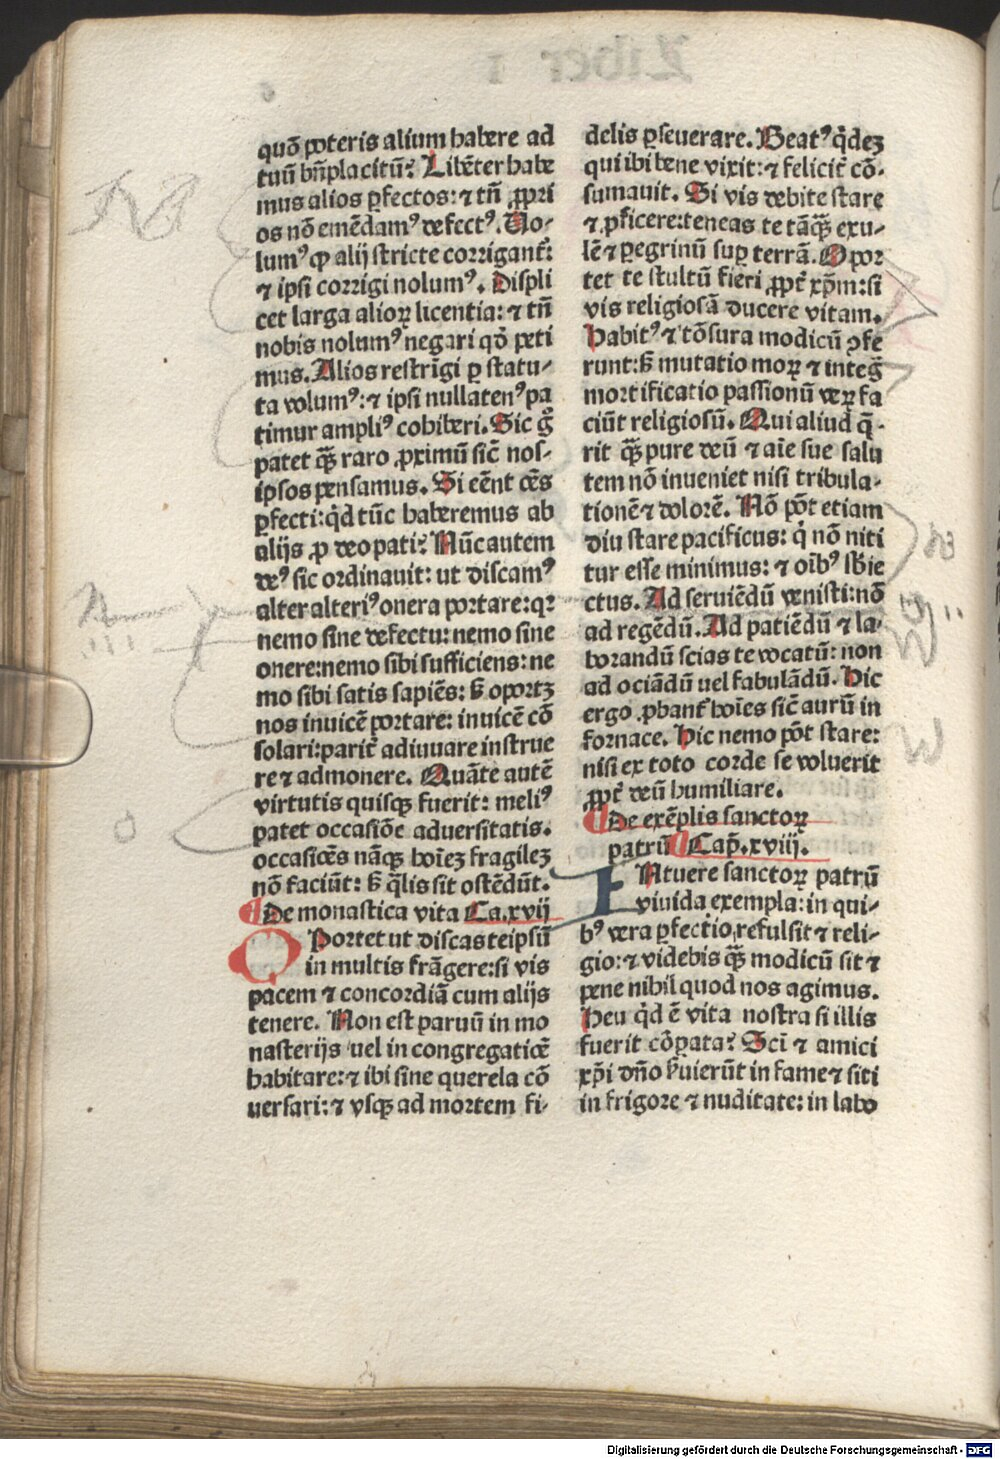 quõ poteris alium habere ad
tuũ bñplacitũ? Libẽter habe
mus alios ꝑfectos: ⁊ tñ ꝓpri
os nõ emẽdamꝰ defectꝰ. Uo-
lumꝰ ꝙ alij stricte corrigantᷣ:
⁊ ipsi corrigi nolumꝰ. Displi
cet larga alioꝝ licentia: ⁊ tñ
nobis nolumꝰ negari qd̕ peti
mus. Alios restrĩgi ꝑ statu-
ta volumꝰ: ⁊ ipsi nullatenꝰ pa
timur ampliꝰ cohiberi. Sic g̃
patet q̃ꝫ raro ꝓximũ sic̃ nos-
ipsos pensamus. Si eẽnt oẽs
ꝑfecti: qd̕ tũc haberemus ab
alijs ꝓ deo pati? Nũc autem
deꝰ sic ordinauit: ut discamꝰ
alter alteriꝰ onera portare: qꝛ
nemo sine defectu: nemo sine
onere: nemo sibi sufficiens: ne
mo sibi satis sapiẽs: ß oportꝫ
nos inuicẽ portare: inuicẽ cõ
solari: parit̃ adiuuare instrue
re ⁊ admonere. Quãte autẽ
virtutis quisqꝫ fuerit: meliꝰ
patet occasiõe aduersitatis.
occasiões nãqꝫ hoĩeꝫ fragileꝫ
nõ faciũt: ß q̃lis sit ostẽdũt.
De monastica vita Ca. xvij
OPortet ut discas teipsũ
in multis frãgere: si vis
pacem ⁊ concordiã cum alijs
tenere. Non est paruũ in mo
nasterijs uel in congregatiõe
habitare: ⁊ ibi sine querela cõ
uersari: ⁊ vsqꝫ ad mortem fi-
delis ꝑseuerare. Beatꝰ qd̕eꝫ
qui ibi bene vixit: ⁊ felicit̃ cõ-
sumauit. Si vis debite stare
⁊ ꝓficere: teneas te tãq̃ꝫ exu-
lẽ ⁊ ꝑegrinũ suꝑ terrã. Opor
tet te stultũ fieri ꝓpt̃ xp̃m: si
vis religiosã ducere vitam.
Habitꝰ ⁊ tõsura modicũ ꝯfe
runt: ß mutatio moꝝ ⁊ integ̃
mortificatio passionũ veꝝ fa
ciũt religiosũ. Qui aliud q̃-
rit q̃ꝫ pure deũ ⁊ aĩe sue salu
tem nõ inueniet nisi tribula-
tionẽ ⁊ dolorẽ. Nõ põt etiam
diu stare pacificus: q̇ nõ niti
tur esse minimus: ⁊ oĩbꝰ sb̕ie
ctus. Ad seruiẽdũ venisti: nõ
ad regẽdũ. Ad patiẽdũ ⁊ la-
borandũ scias te vocatũ: non
ad ociãdũ uel fabulãdũ. Hic
ergo ꝓbantᷣ hoĩes sic̃ aurũ in
fornace. Hic nemo põt stare:
nisi ex toto corde se voluerit
ꝓpt̃ deũ humiliare.
De exẽplis sanctoꝝ
patrũ Cap̃. xviij.
INtuere sanctoꝝ patrũ
viuida exempla: in qui-
bꝰ vera ꝑfectio refulsit ⁊ reli-
gio: ⁊ videbis q̃ꝫ modicũ sit ⁊
pene nihil quod nos agimus.
Heu qd̕ ẽ vita nostra si illis
fuerit cõꝑata? Scĩ ⁊ amici
xp̃i dño ẜuierũt in fame ⁊ siti
in frigore ⁊ nuditate: in labo
Digitalisierung gefördert durch die Deutsche Forschungsgemeinschaft - DFG